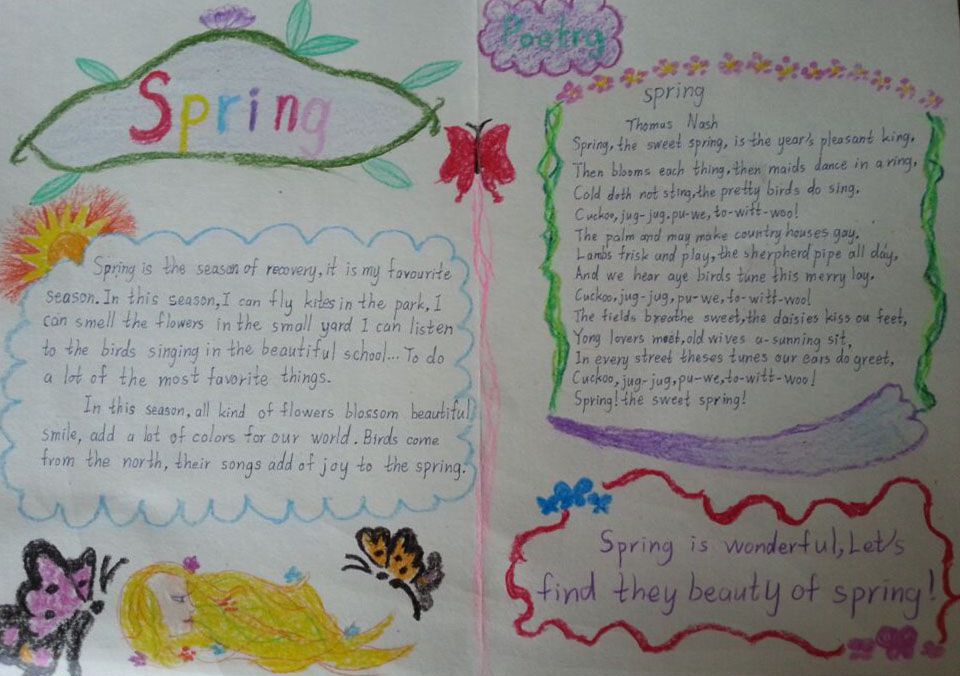 Spring
Spring is the season of recovery, it is my favourite
season. In this season, I can fly kites in the park, I
can smell the flowers in the small yard I can listen
to the birds singing in the beautiful school... To do
a lot of the most favorite things.
In this season, all kind of flowers blossom beautiful
smile, add a lot of colors for our world. Birds come
from the north, their songs add of joy to the spring.
Pootry
spring
Thomas Nash
Spring, the sweet spring, is the year's pleasant king.
Then blooms each thing, then maids dance in a ring,
Cold doth not sting, the pretty birds do sing.
Cuckoo, jug-jug, pu-we, to-witt-woo!
The palm and may make country houses gay,
Lambs frisk and play, the sherpherd pipe all day,
And we hear aye birds tune this merry lay.
Cuckoo, jug-jug, pu-we, to-witt-woo!
The fields breathe sweet, the daisies kiss ou feet,
Yong lovers meet, old wives a-sunning sit,
In every street theses tunes our ears do greet,
Cuckoo, jug-jug, pu-we, to-witt-woo!
Spring! the sweet spring!
Spring is wonderful, Let's
find they beauty of spring!